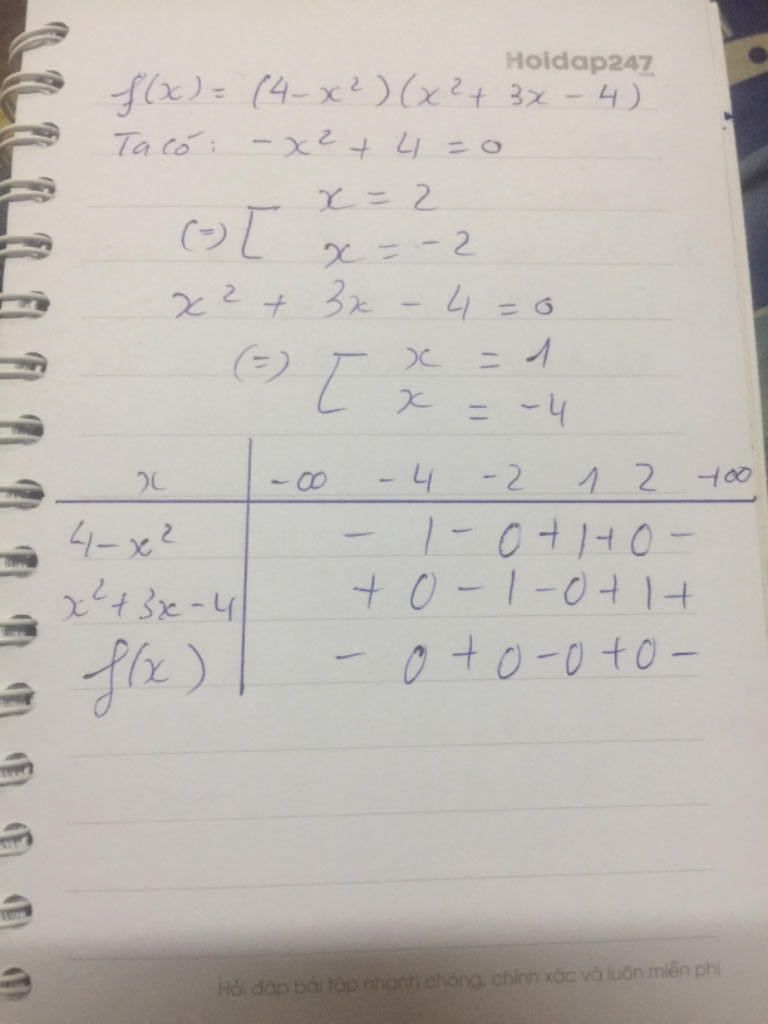 Hoidap247
f(x) = (4-x²)(x²+ 3x - 4)
Ta có: -x² + 4 = 0
x = 2
(=) [
x = -2
x² + 3x - 4 = 0
(=) [ x = 1
x = -4
x -∞ -4 -2 1 2 +∞
4-x² - | - 0 + | + 0 -
x²+3x-4 + 0 - | - 0 + | +
f(x) - 0 + 0 - 0 + 0 -
Hỏi đáp bài tập nhanh chóng, chính xác và luôn miễn phí